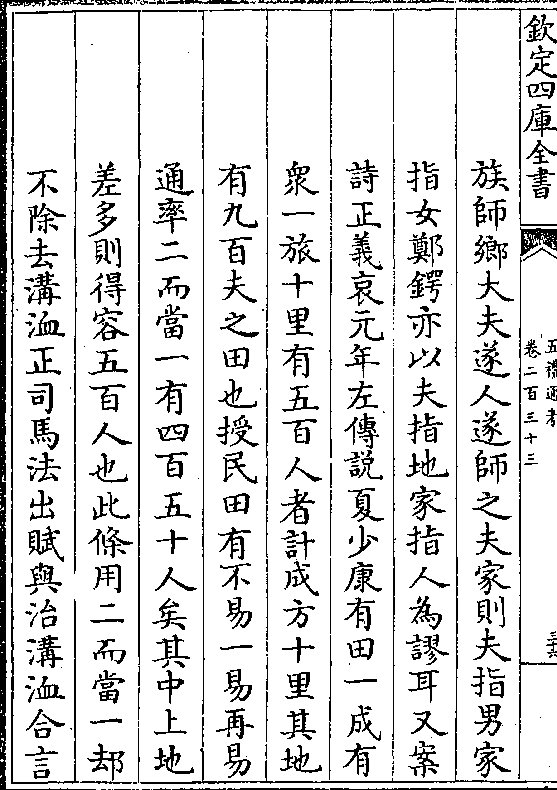 欽定四庫全書
五禮通考
卷二百三十三
族師鄉大夫遂人遂師之夫家則夫指男家
指女鄭鍔亦以夫指地家指人為謬耳又案
詩正義哀元年左傳説夏少康有田一成有
衆一旅十里有五百人者計成方十里其地
有九百夫之田也授民田有不易一易再易
通率二而當一有四百五十人矣其中上地
差多則得容五百人也此條用二而當一却
不除去溝洫正司馬法出賦與治溝洫合言